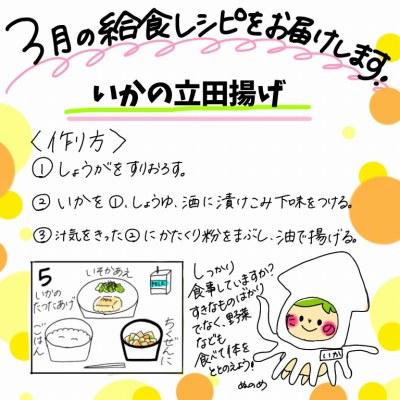 3月の給食レシピをお届けします!
いかの立田揚げ
〈作り方〉
①しょうがをすりおろす。
②いかを①、しょうゆ、酒に漬けこみ下味をつける。
③汁気をきった②にかたくり粉をまぶし、油で揚げる。
5
いそかあえ
MILK
いかの
たつたあげ
ごはん
ちくぜんに
しっかり
食事していますか?
すきなものばかり
でなく、野菜
なども
食べて体を
ととのえよう!
ぬのめ
いか